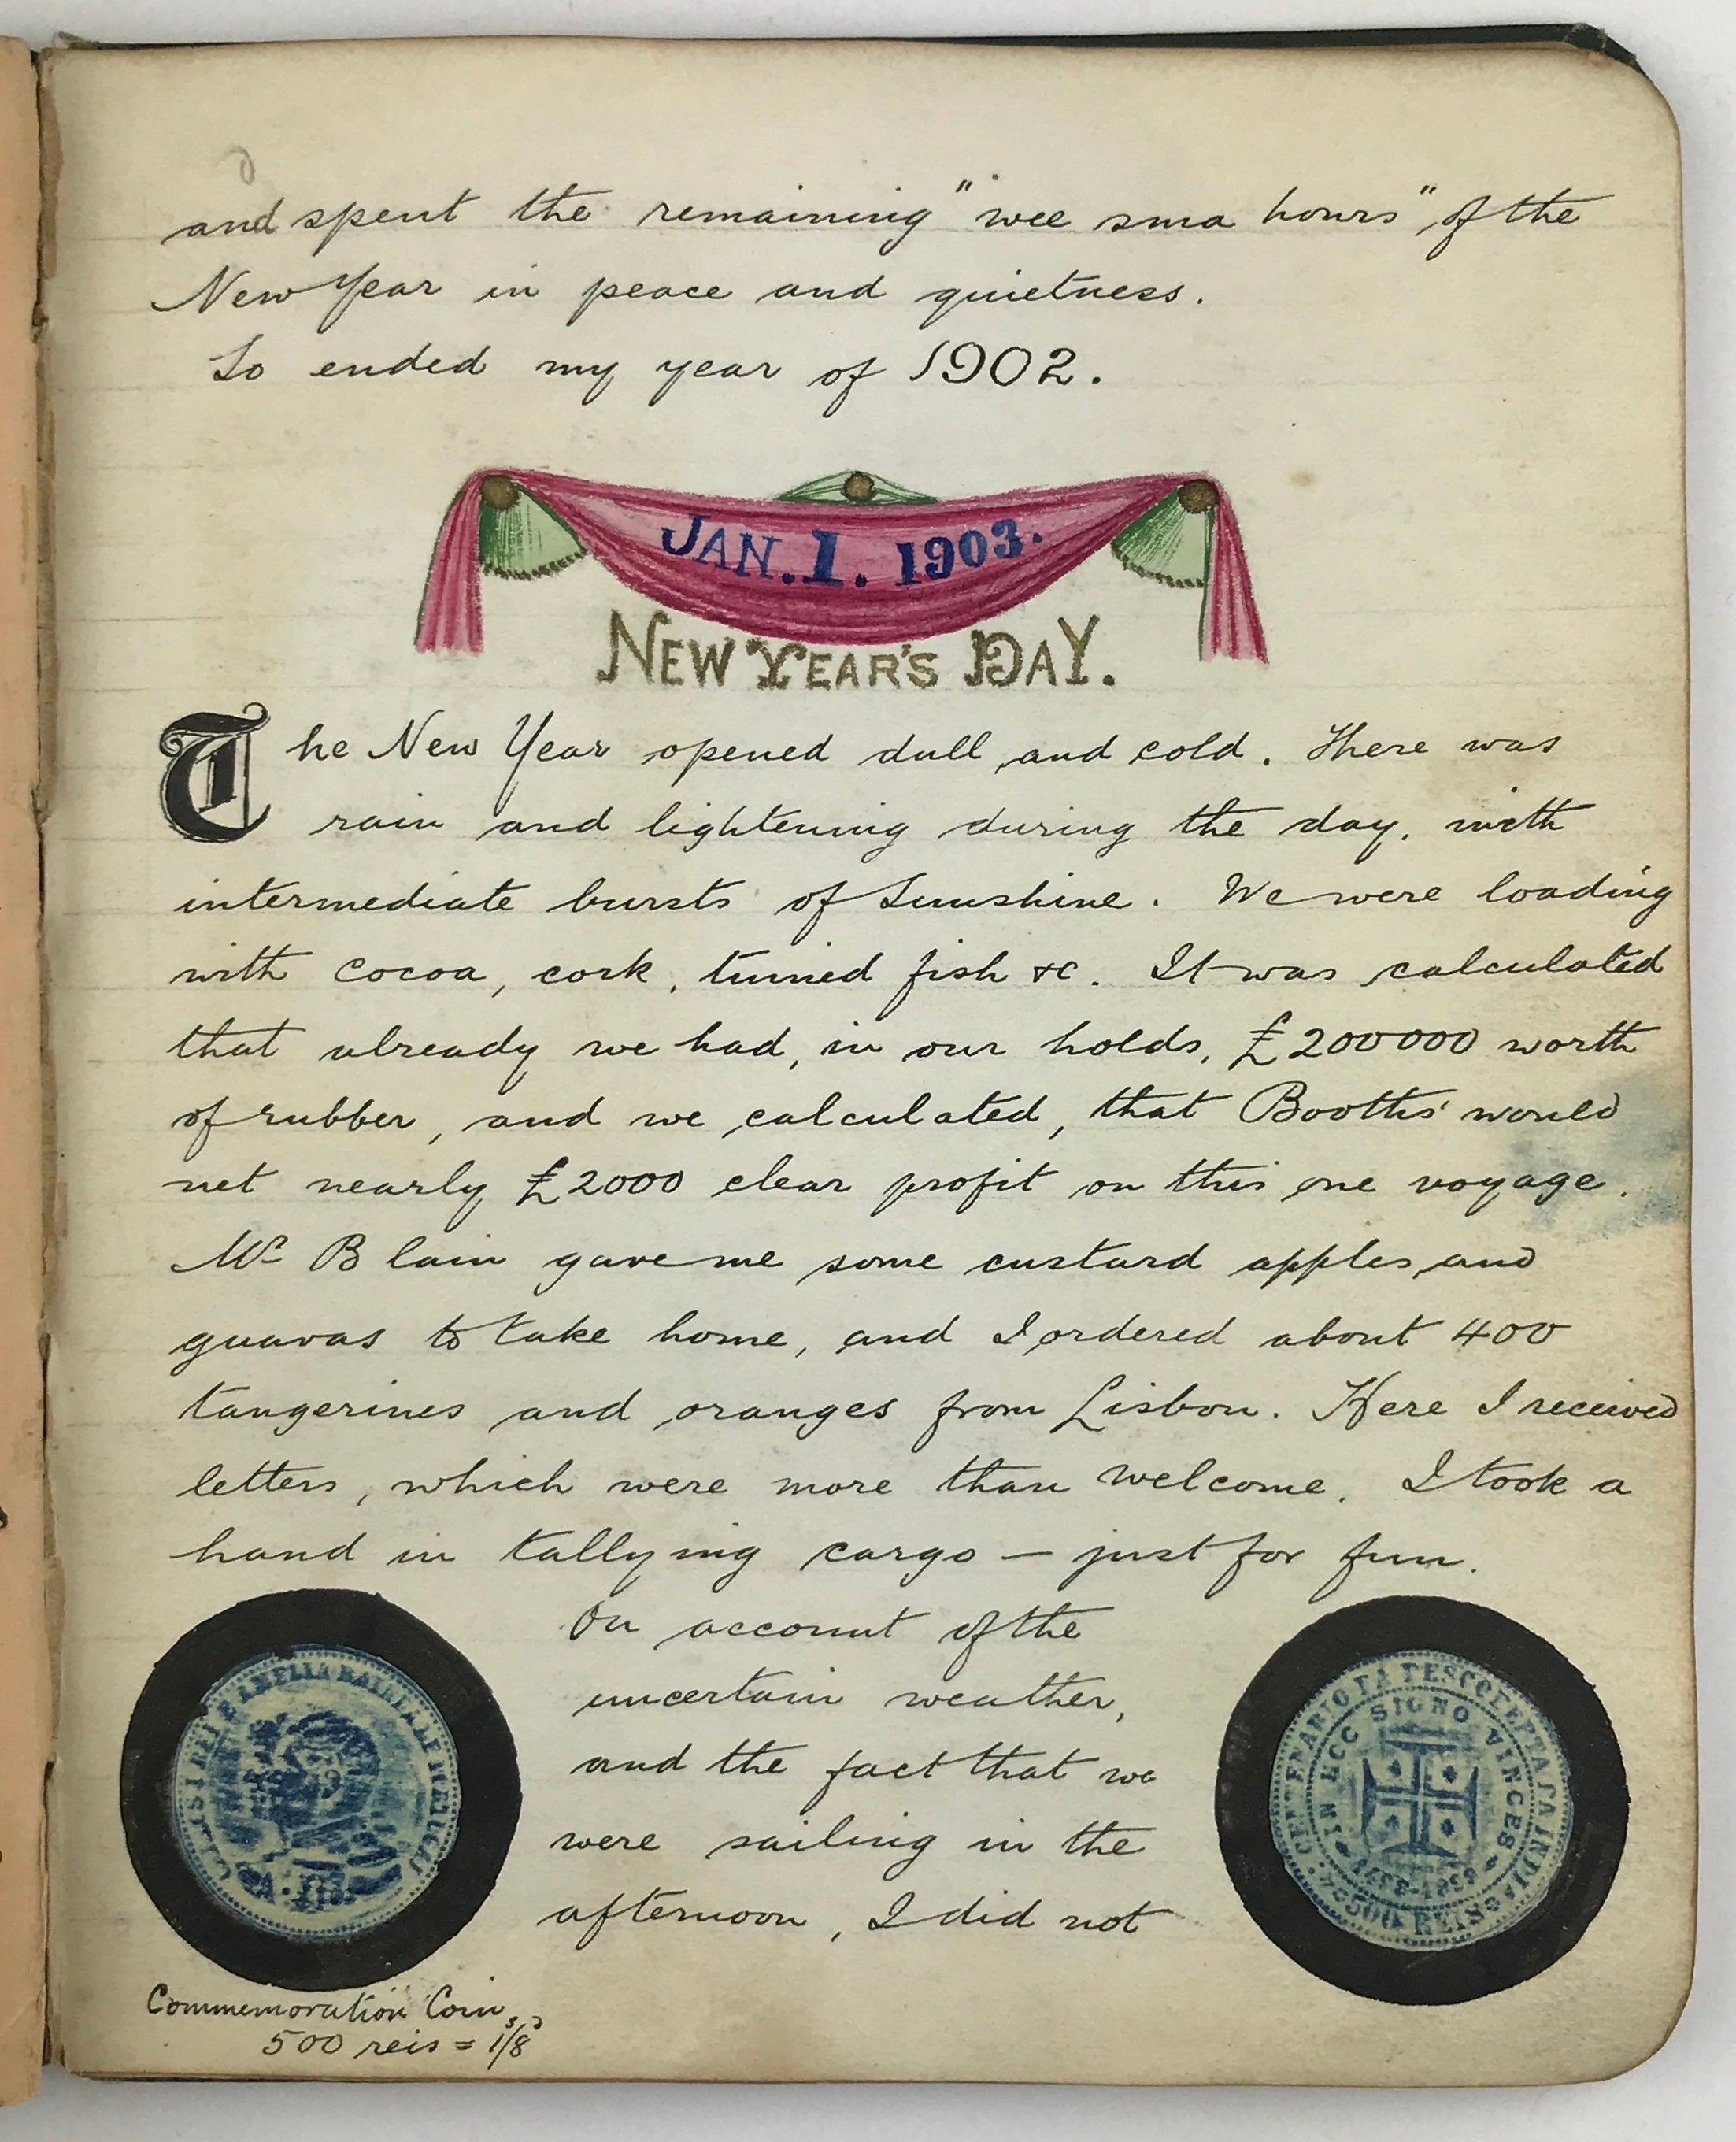 and spent the remaining "wee sma hours" of the
New Year in peace and quietness.
So ended my year of 1902.
JAN. 1. 1903.
NEW YEAR'S DAY.
The New Year opened dull and cold. There was
rain and lightening during the day, with
intermediate bursts of Sunshine. We were loading
with cocoa, cork, tinned fish &c. It was calculated
that already we had, in our holds, £200000 worth
of rubber, and we calculated, that Booths' would
net nearly £2000 clear profit on this one voyage.
Mr Blain gave me some custard apples and
guavas to take home, and I ordered about 400
tangerines and oranges from Lisbon. Here I received
letters, which were more than welcome. I took a
hand in tallying cargo – just for fun.
On account of the
uncertain weather,
and the fact that we
were sailing in the
afternoon, I did not
IN HOC SIGNO VINCES
500 REIS
Commemoration Coin
500 reis = 1/8